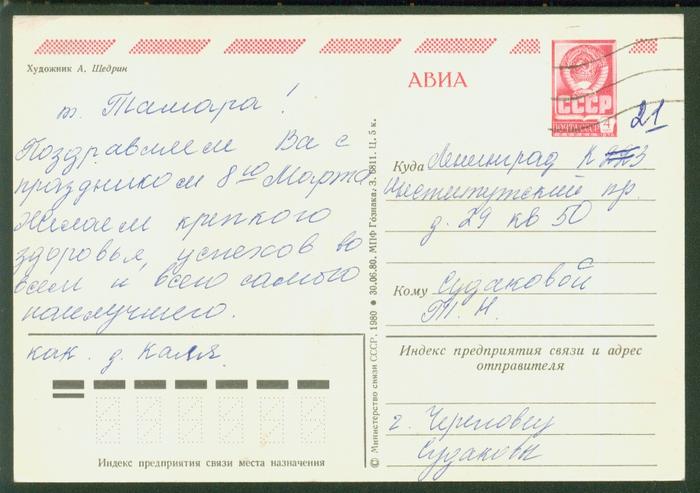 Художник А. Щедрин
т. Тамара!
Поздравляем Вас с
праздником 8го Марта
Желаем крепкого
здоровья, успехов во
всем и всего самого
наилучшего.
д. Коля.
Индекс предприятия связи места назначения
© Министерство связи СССР. 1980 ● 30.06.80. МПФ Гознака. З. 6811. Ц. 5 к.
АВИА
СССР
ПОЧТА
4
21
Куда Ленинград К
Институтский пр.
д. 29 кв 50
Кому Судаковой
Т. Н.
Индекс предприятия связи и адрес
отправителя
г. Череповец